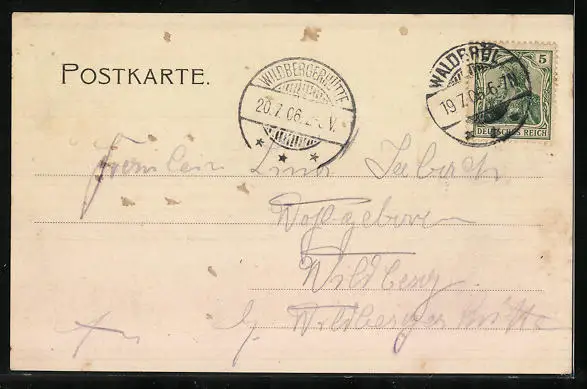 POSTKARTE.
WILDBERGERHÜTTE
20.7.06. 2-3 V.
WALDBRÖL
19.7.06. 6-7N.
5
DEUTSCHES REICH
Fräulein Lina
Wohlgeboren
Wildberg
b/ Wildbergerhütte